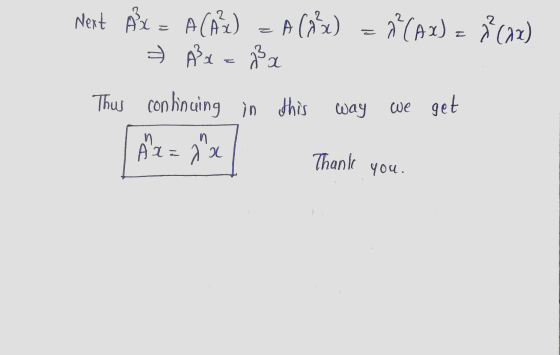 Next A³x = A(A²x) = A(λ²x) = λ²(Ax) = λ²(λx)
⇒ A³x = λ³x
Thus continuing in this way we get
Aⁿx = λⁿx
Thank you.